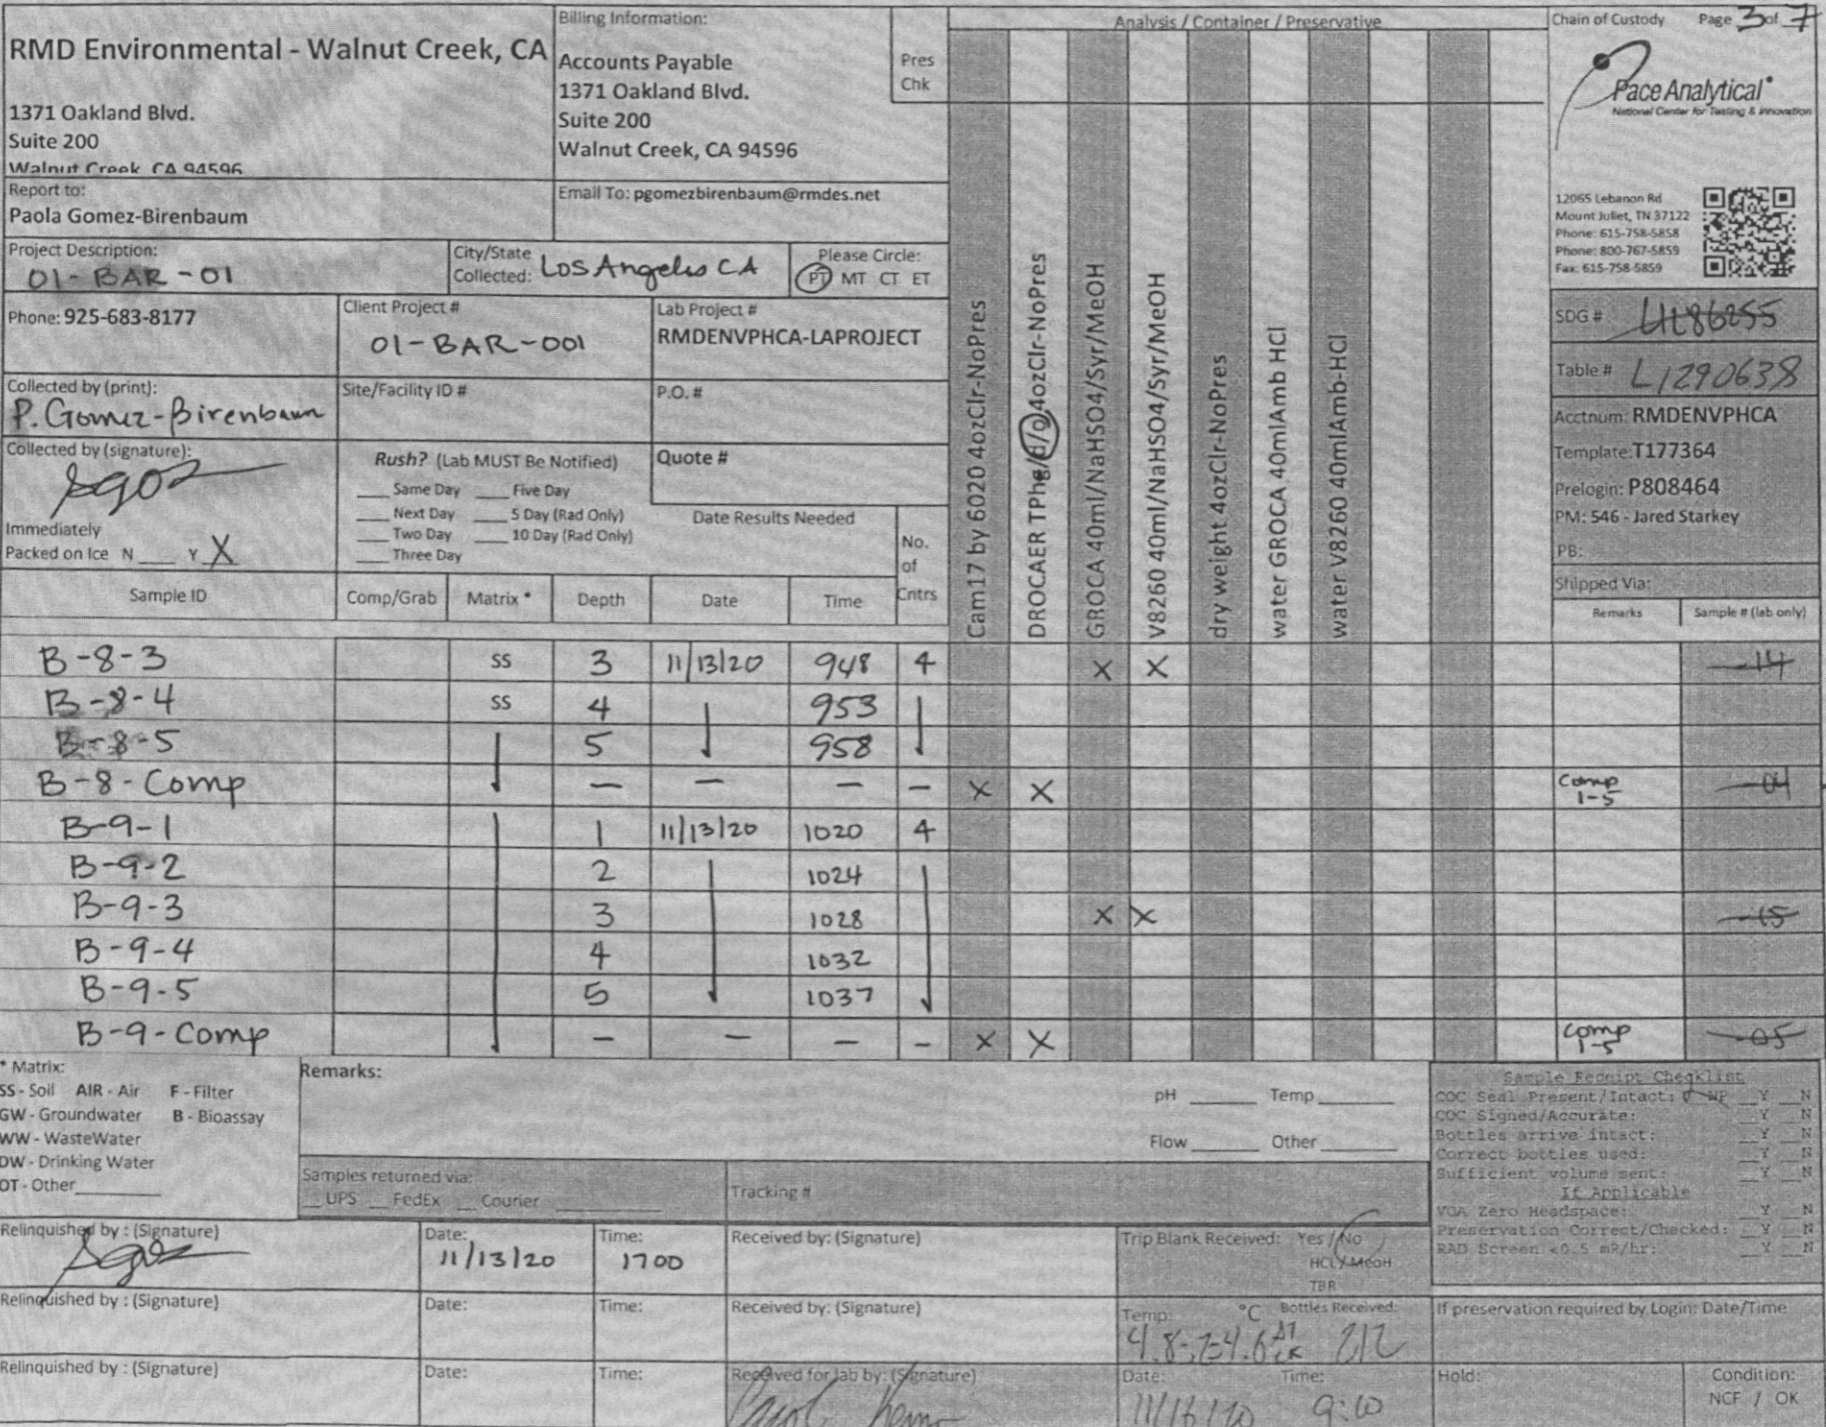 RMD Environmental - Walnut Creek, CA
1371 Oakland Blvd.
Suite 200
Walnut Creek, CA 94596
Billing Information:
Accounts Payable
1371 Oakland Blvd.
Suite 200
Walnut Creek, CA 94596
Pres
Chk
Analysis / Container / Preservative
Chain of Custody Page 3 of 7
Pace Analytical
National Center for Testing & Innovation
12065 Lebanon Rd
Mount Juliet, TN 37122
Phone: 615-758-5858
Phone: 800-767-5859
Fax: 615-758-5859
Report to:
Paola Gomez-Birenbaum
Email To: pgomezbirenbaum@rmdes.net
Project Description:
01-BAR-01
City/State
Collected: Los Angeles CA
Please Circle:
PT MT CT ET
Phone: 925-683-8177
Client Project #
01-BAR-001
Lab Project #
RMDENVPHCA-LAPROJECT
Collected by (print):
P. Gomez-Birenbaum
Site/Facility ID #
P.O. #
Collected by (signature):
Rush? (Lab MUST Be Notified)
Same Day Five Day
Next Day 5 Day (Rad Only)
Two Day 10 Day (Rad Only)
Three Day
Quote #
Date Results Needed
No.
of
Cntrs
Immediately
Packed on Ice N Y X
Cam17 by 6020 4ozClr-NoPres
DROCAER TPhg/d/o 4ozClr-NoPres
GROCA 40ml/NaHSO4/Syr/MeOH
V8260 40ml/NaHSO4/Syr/MeOH
dry weight 4ozClr-NoPres
water GROCA 40mlAmb HCl
water V8260 40mlAmb-HCl
SDG #
Table # L1290638
Acctnum: RMDENVPHCA
Template:T177364
Prelogin: P808464
PM: 546 - Jared Starkey
PB:
Shipped Via:
Sample ID Comp/Grab Matrix * Depth Date Time Remarks Sample # (lab only)
B-8-3 SS 3 11/13/20 948 4 X X -14
B-8-4 SS 4 953
B-8-5 5 958
B-8-Comp — — — — X X Comp 1-5 -04
B-9-1 1 11/13/20 1020 4
B-9-2 2 1024
B-9-3 3 1028 X X -15
B-9-4 4 1032
B-9-5 5 1037
B-9-Comp — — — — X X Comp 1-5 -05
* Matrix:
SS - Soil AIR - Air F - Filter
GW - Groundwater B - Bioassay
WW - WasteWater
DW - Drinking Water
OT - Other
Remarks:
pH Temp
Flow Other
Samples returned via:
UPS FedEx Courier
Tracking #
Sample Receipt Checklist
COC Seal Present/Intact: NP Y N
COC Signed/Accurate: Y N
Bottles arrive intact: Y N
Correct bottles used: Y N
Sufficient volume sent: Y N
If Applicable
VOA Zero Headspace: Y N
Preservation Correct/Checked: Y N
RAD Screen <0.5 mR/hr: Y N
Relinquished by : (Signature)
Date:
11/13/20
Time:
1700
Received by: (Signature)
Trip Blank Received: Yes / No
HCL / MeoH
TBR
Relinquished by : (Signature)
Date:
Time:
Received by: (Signature)
Temp: °C Bottles Received:
212
If preservation required by Login: Date/Time
Relinquished by : (Signature)
Date:
Time:
Received for lab by: (Signature)
Date:
11/16/20
Time:
9:00
Hold:
Condition:
NCF / OK